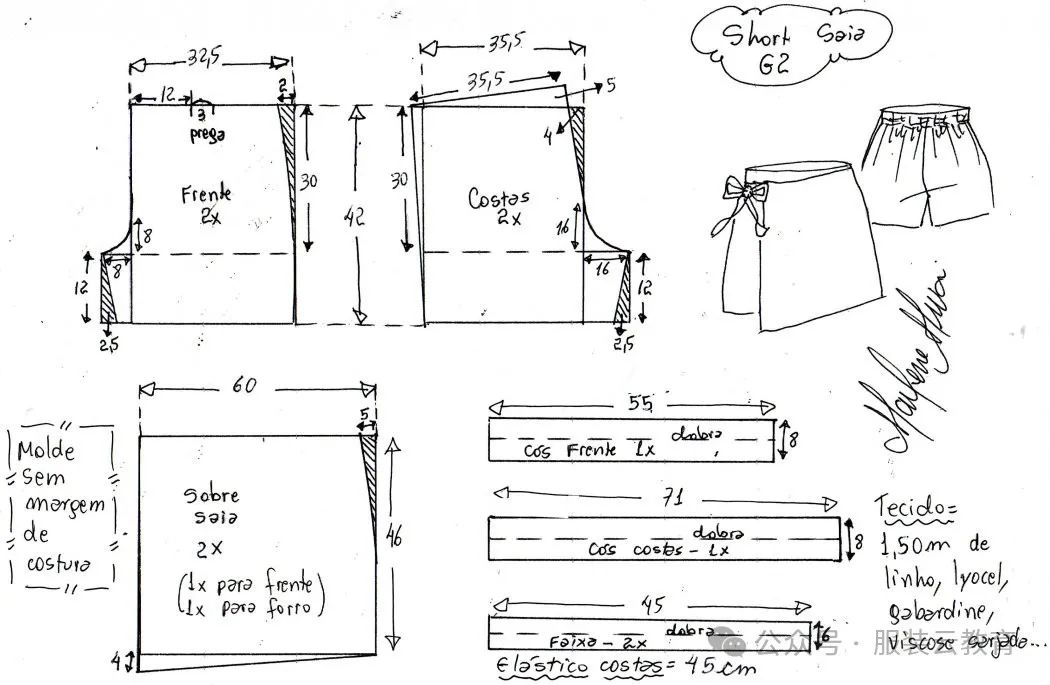 Short Saia
G2
32,5
12
3
prega
2
Frente
2x
30
8
8
12
2,5
42
35,5
35,5
5
4
30
Costas
2x
16
16
12
2,5
60
5
Sobre
saia
2x
(1x para frente
1x para forro)
46
4
Molde
sem
margem
de
costura
55
dobra
Cós Frente 1x
8
71
dobra
Cós costas - 1x
8
45
dobra
Faixa - 2x
6
Elástico costas = 45cm
Tecido =
1,50m de
linho, lyocel,
gabardine,
viscose sarjada...
公众号 · 服装云教育